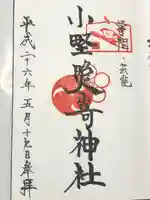 学問・芸能
小野照崎神社
平成二十六年五月十七日奉拝